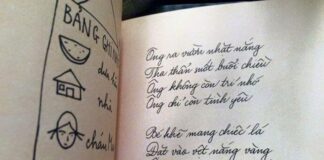 BẢNG GHI
dưa
nhà
cháu
Ông ra vườn nhặt nắng
Tha thẩn suốt buổi chiều
Ông không còn trí nhớ
Ông chỉ còn tình yêu
Bé khẽ mang chiếc lá
Đặt vào vệt nắng vàng